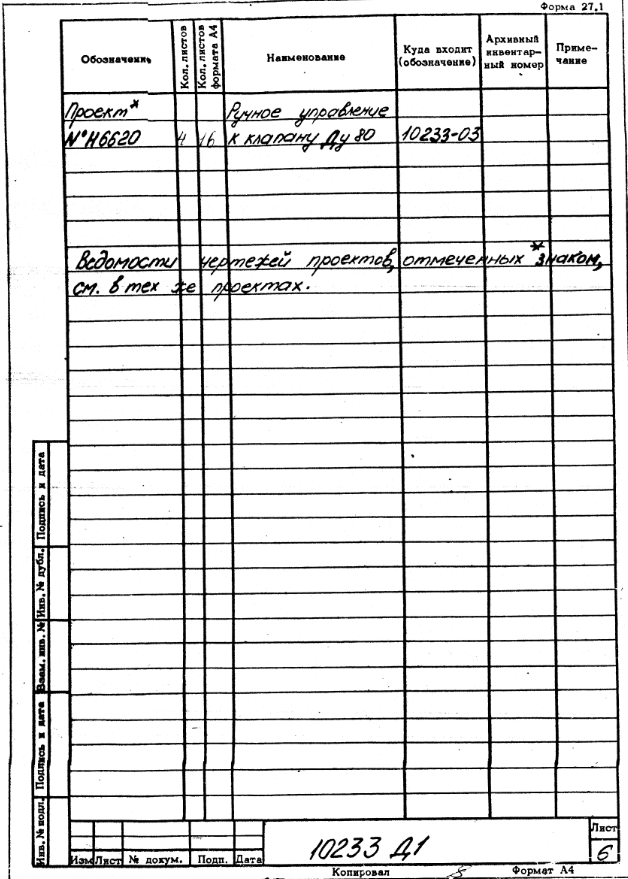 Форма 27.1
Обозначение
Кол. листов
Кол. листов формата А4
Наименование
Куда входит (обозначение)
Архивный инвентарный номер
Примечание
Проект* Ручное управление
N°Н6620 4 16 к клапану Ду 80 10233-03
Ведомости чертежей проектов, отмеченных * знаком,
см. в тех же проектах.
Инв. № подл.
Подпись и дата
Взам. инв. №
Инв. № дубл.
Подпись и дата
Изм Лист № докум. Подп. Дата
10233 Д1
Лист
6
Копировал
Формат А4